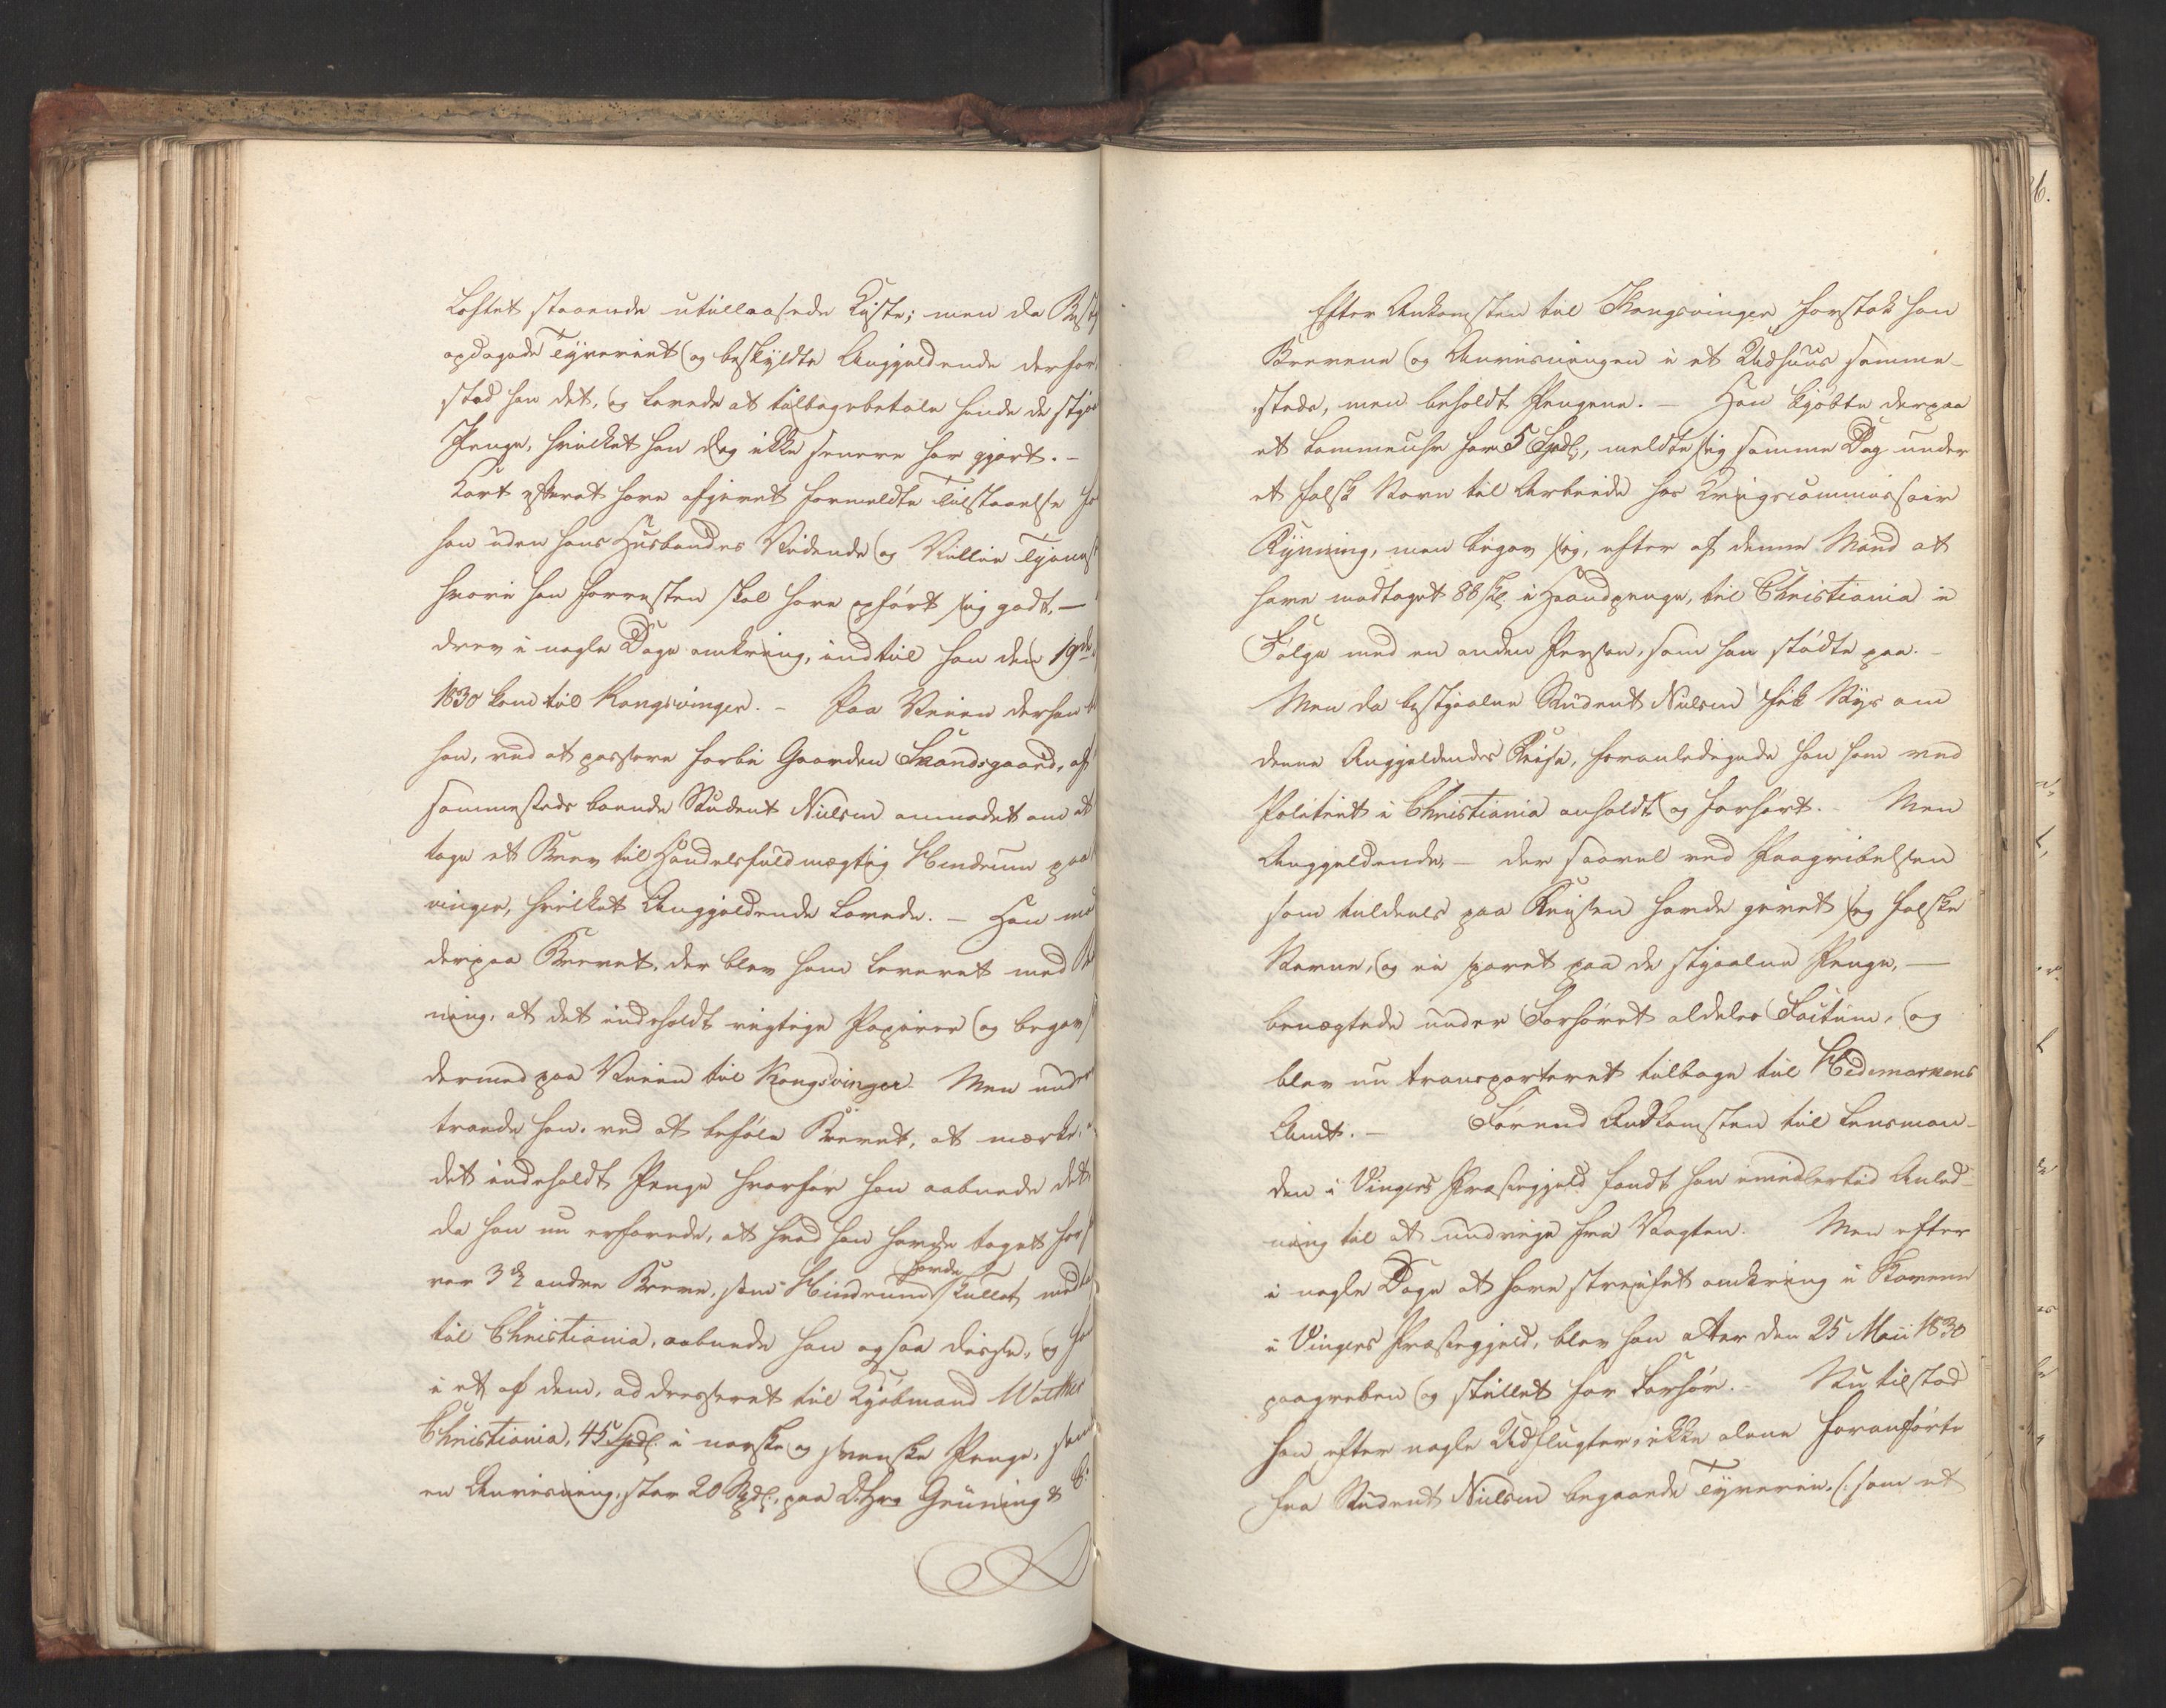 Loftet staaende utillaasede Kiste; men da
opdagede Tyveriet og beskyldte Angjeldende derfor,
stod han det, og lovede at tilbagebetale hende de
Penge, hvilket han dog ikke senere har gjort. –
Kort efterat have afgivet formeldte Tilstaaelse
han uden hans Husbondes Vidende og Villie
hvori han forresten skal have opført sig godt, –
drev i nogle Dage omkring, indtil han den 19de
1830 kom til Kongsvinger. – Paa Veien derhen
han, ved at passere forbi Gaarden Strandsgaard, af
sammesteds boende Student Nielsen anmodet om at
tage et Brev til Handelsfuldmægtig Hindrum paa
vinger, hvilket Angjeldende lovede. – Han
derpaa Brevet, der blev ham leveret med
ning, at det indeholdt vigtige Papirer og begav
dermed paa Veien til Kongsvinger. Men under
troede han, ved at beføle Brevet, at mærke,
det indeholdt Penge hvorfor han aabnede det,
da han nu erfarede, at hvad han havde taget for
var 3de andre Breve, som Hindrum havde skullet
til Christiania, aabnede han ogsaa disse, og
i et af dem, addresseret til Kjøbmand
Christiania, 45 Spd. i norske og svenske Penge, samt
en Anvisning, stor 20 Spd., paa D'Hrr Grüning &
Efter Ankomsten til Kongsvinger forstak han
Brevene og Anvisningen i et Udhuus samme-
steds, men beholdt Pengene. – Han kjøbte derpaa
et Lommeuhr for 5 Spd., meldte sig samme Dag under
et falsk Navn til Arbeide hos Krigscommissair
Rynning, men begav sig, efter af denne Mand at
have modtaget 88 sk. i Haandpenge, til Christiania i
Følge med en anden Person, som han stødte paa. –
Men da bestjaalne Student Nielsen fik Nys om
denne Angjeldendes Reise, foranledigede han ham ved
Politiet i Christiania anholdt og forhørt. – Men
Angjeldende, – der saavel ved Paagribelsen
som tildeels paa Reisen havde givet sig falske
Navne, og ei sparet paa de stjaalne Penge, –
benægtede under Forhøret aldeles Factum, og
blev nu transporteret tilbage til Hedemarkens
Amt. – Førend Ankomsten til Lensman-
den i Vingers Præstegjeld fandt han imidlertid Anled-
ning til at undvige fra Vagten. Men efter
i nogle Dage at have streifet omkring i Skovene
i Vingers Præstegjeld, blev han atter den 25 Maii 1830
paagreben og stillet for Forhør. – Nu tilstod
han efter nogle Udflugter, ikke alene foranførte
fra Student Nielsen begaaede Tyverie, (: som et